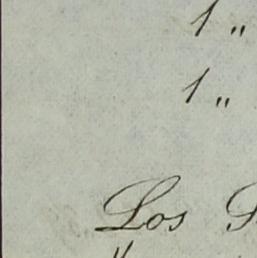 1 "
1 "
Los